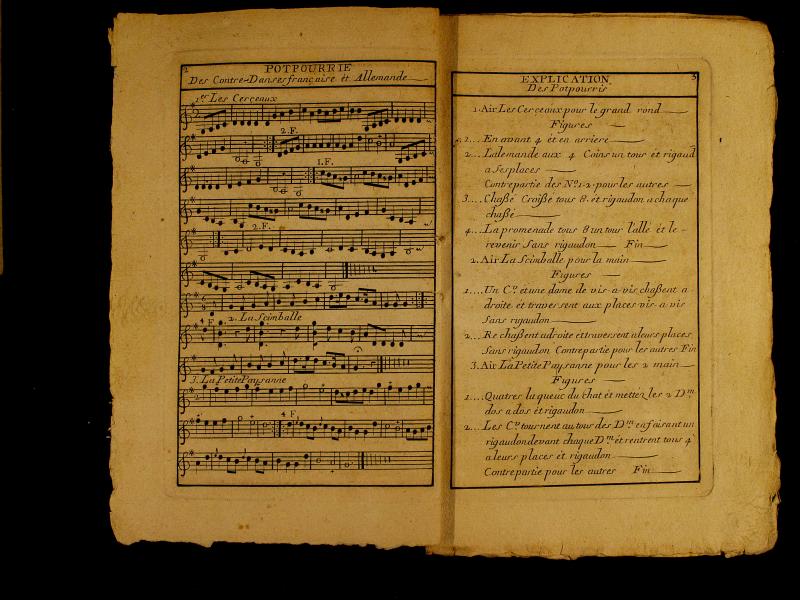 2
POTPOURRIE
Des Contre-Danses française et Allemande
1er Les Cerceaux
2. F.
1. F.
2. F.
4 F.
2. La Scimballe
3. La Petite Paysanne
4 F.
3
EXPLICATION
Des Potpourris
1. Air Les Cerceaux pour le grand rond
Figures
2... En avant 4 et en arriere
2... Lalemande aux 4 Coins un tour et rigaud
a ses places
Contrepartie des Nos 1.2. pour les autres
3.... Chaßé Croißé tous 8. et rigaudon a chaque
chaßé
4.... La promenade tous 8 un tour l'allé et le
revenir Sans rigaudon Fin
2. Air La Scimballe pour la main
Figures
1.... Un Cer et une dame de vis-a-vis chaßent a
droite et traversent aux places vis-a-vis
Sans rigaudon
2... Re chaßent adroite et traversent a leurs places
Sans rigaudon Contrepartie pour les autres Fin
3. Air La Petite Paysanne pour les 2 main
Figures
1.... Quatres la queuc du chat et mettez les 2 Dm
dos a dos et rigaudon
2... Les Cer tournent au tour des Dm en faisant un
rigaudon devant chaque Dm et rentrent tous 4
a leurs places et rigaudon
Contrepartie pour les autres Fin